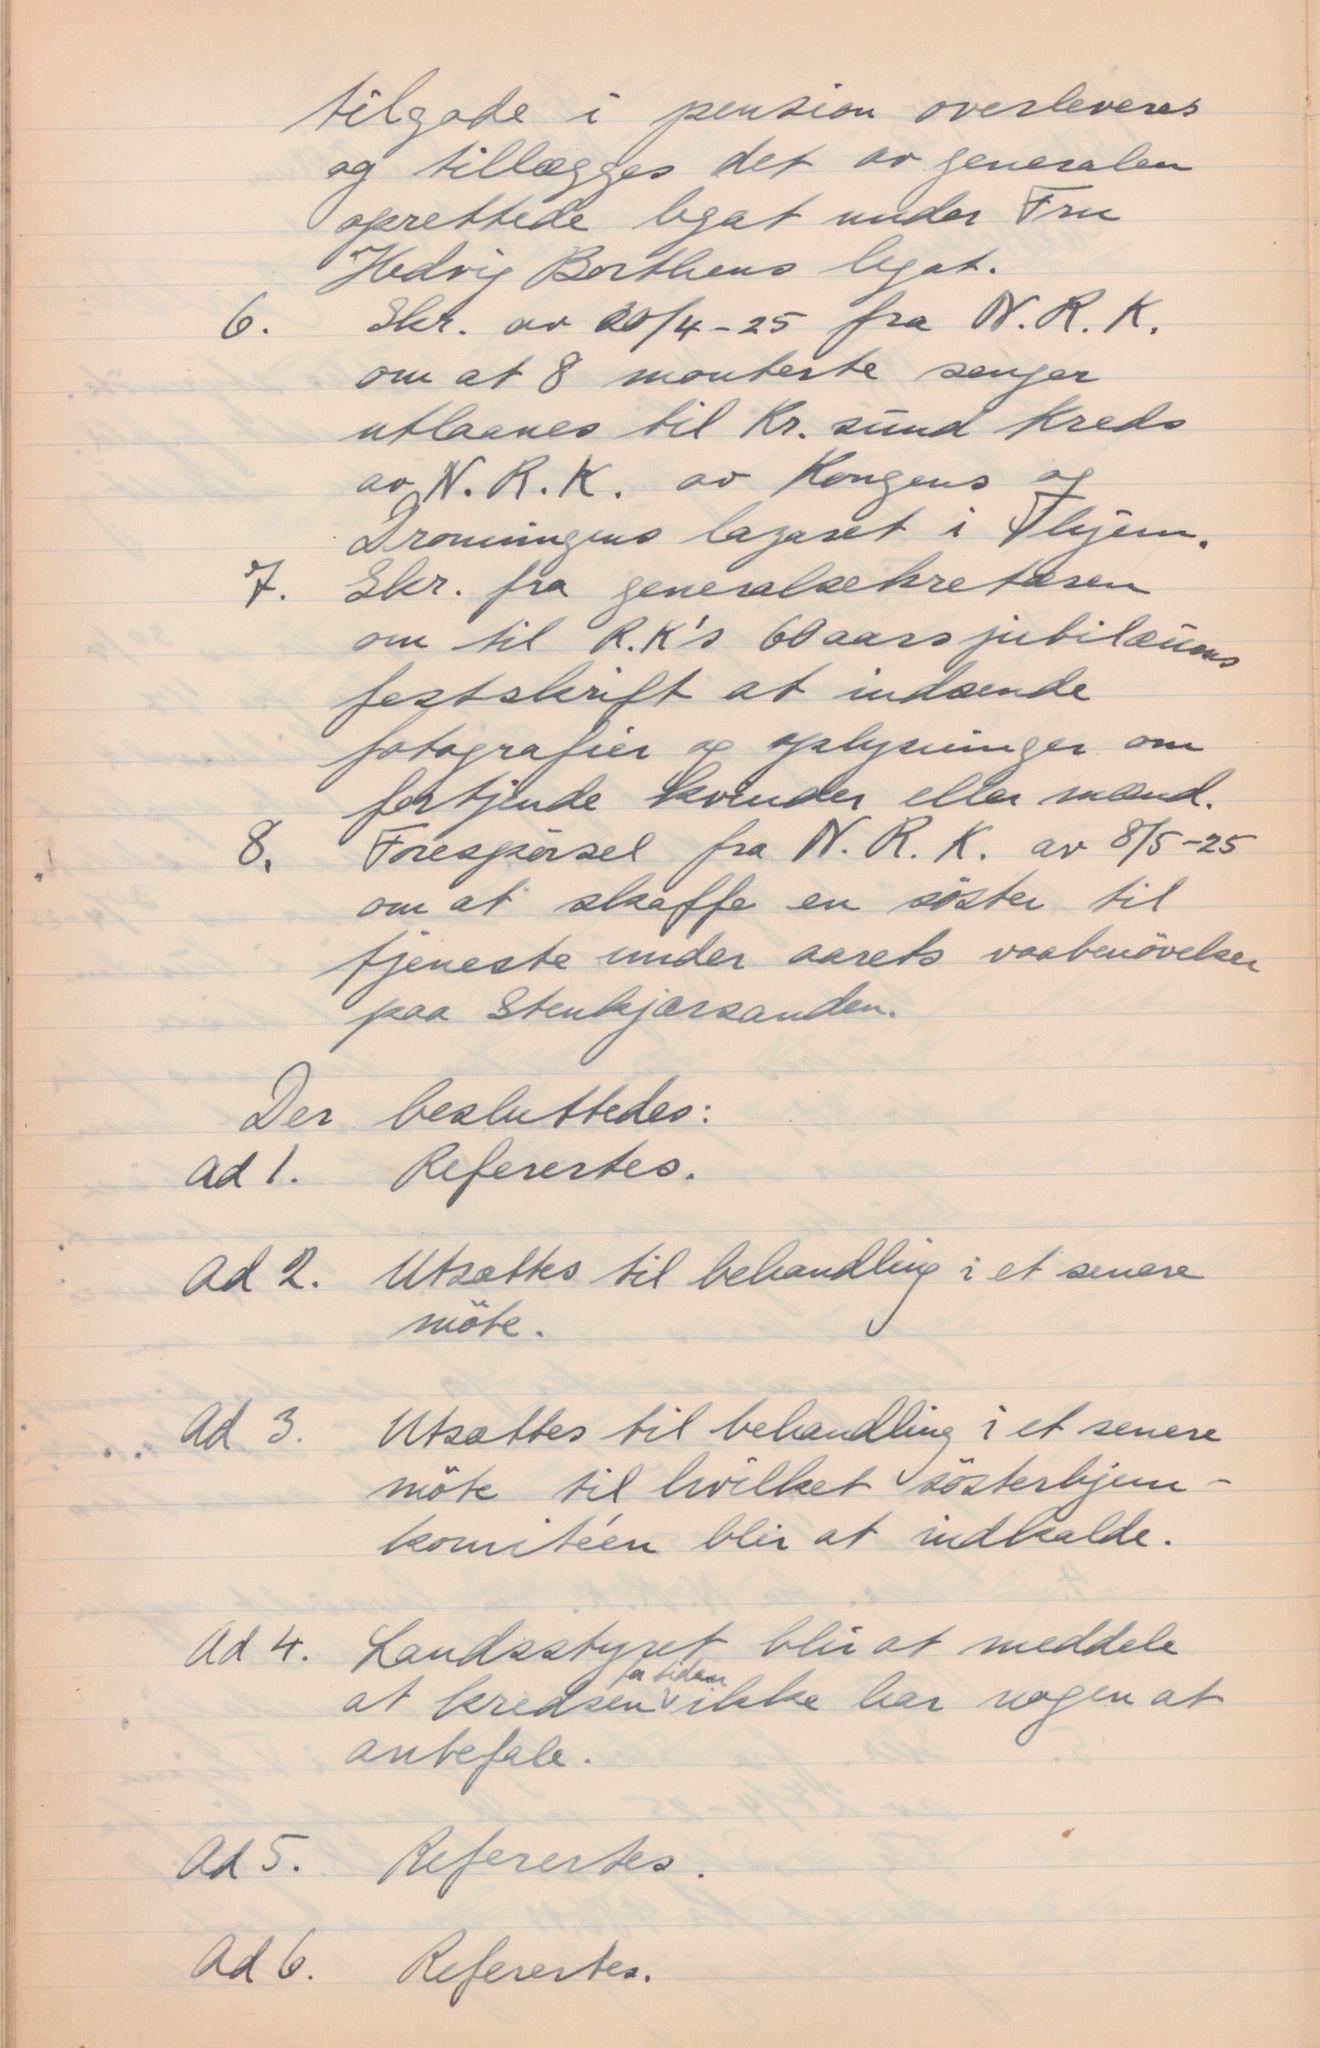 tilgode i pension overleveres
og tillægges det av generalen
oprettede legat under Fru
Hedvig Borthens legat.
6. Skr. av 20/4-25 fra N.R.K.
om at 8 monterte senger
utlaanes til Kr.sund Kreds
av N.R.K. av Kongens og
Dronningens lazaret i Thjem.
7. Skr. fra generalsekretæren
om til R.K's 60 aars jubilæums
festskrift at indsende
fotografier og oplysninger om
fortjente kvinder eller mænd.
8. Forespörsel fra N.R.K. av 8/5-25
om at skaffe en söster til
tjeneste under aarets vaabenövelser
paa Stenkjærsanden.
Der besluttedes:
Ad 1. Refertes.
Ad 2. Utsættes til behandling i et senere
möte.
Ad 3. Utsættes til behandling i et senere
möte til hvilket sösterhjem-
komitéen blir at indkalde.
Ad 4. Landsstyret blir at meddele
at kredsen for tiden ikke har nogen at
anbefale.
Ad 5. Refertes.
Ad 6. Refertes.